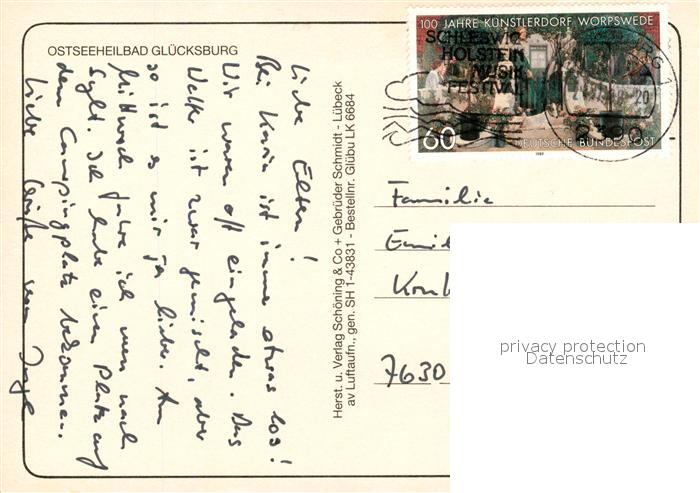 OSTSEEHEILBAD GLÜCKSBURG
Liebe Eltern!
Bei Karin ist immer etwas los!
Wir waren oft eingeladen. Das
Wetter ist zwar gemischt, aber
so ist es mir ja lieber. Am
Mittwoch fahre ich nun nach
Sylt. Ich habe einen Platz auf
dem Campingplatz bekommen.
Liebe Grüße von
Herst. u. Verlag Schöning & Co + Gebrüder Schmidt - Lübeck
av Luftaufn., gen. SH 1-43831 - Bestellnr. Glübu LK 6684
100 JAHRE KÜNSTLERDORF WORPSWEDE
SCHLESWIG
HOLSTEIN
MUSIK
FESTIVAL
60
DEUTSCHE BUNDESPOST
1989
2390
Familie
Emil
7630
privacy protection
Datenschutz